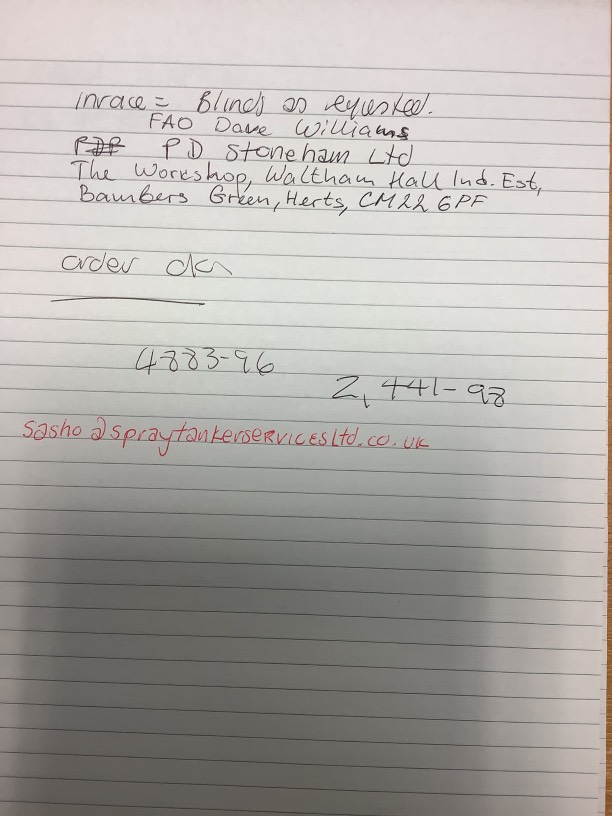 invoice = Blinds as requested.
FAO Dave Williams
PDP PD Stoneham Ltd
The Workshop, Waltham Hall Ind. Est,
Bambers Green, Herts, CM22 6PF
order ok
4883-96
2,441-98
sasho@spraytankerservicesltd.co.uk